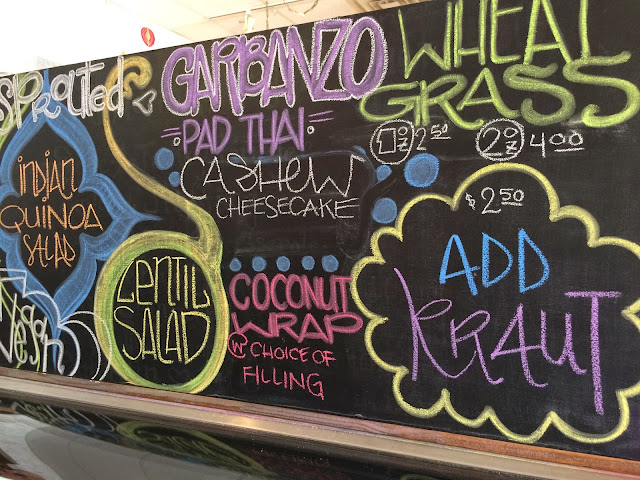 Sprouted
GARBANZO
WHEAT
GRASS
=PAD THAI=
1 OZ 2.50 2 OZ 4.00
CASHEW
CHEESECAKE
indian
QUINOA
SALAD
LENTIL
SALAD
COCONUT
WRAP
W/ CHOICE OF
FILLING
$2.50
ADD
KRAUT